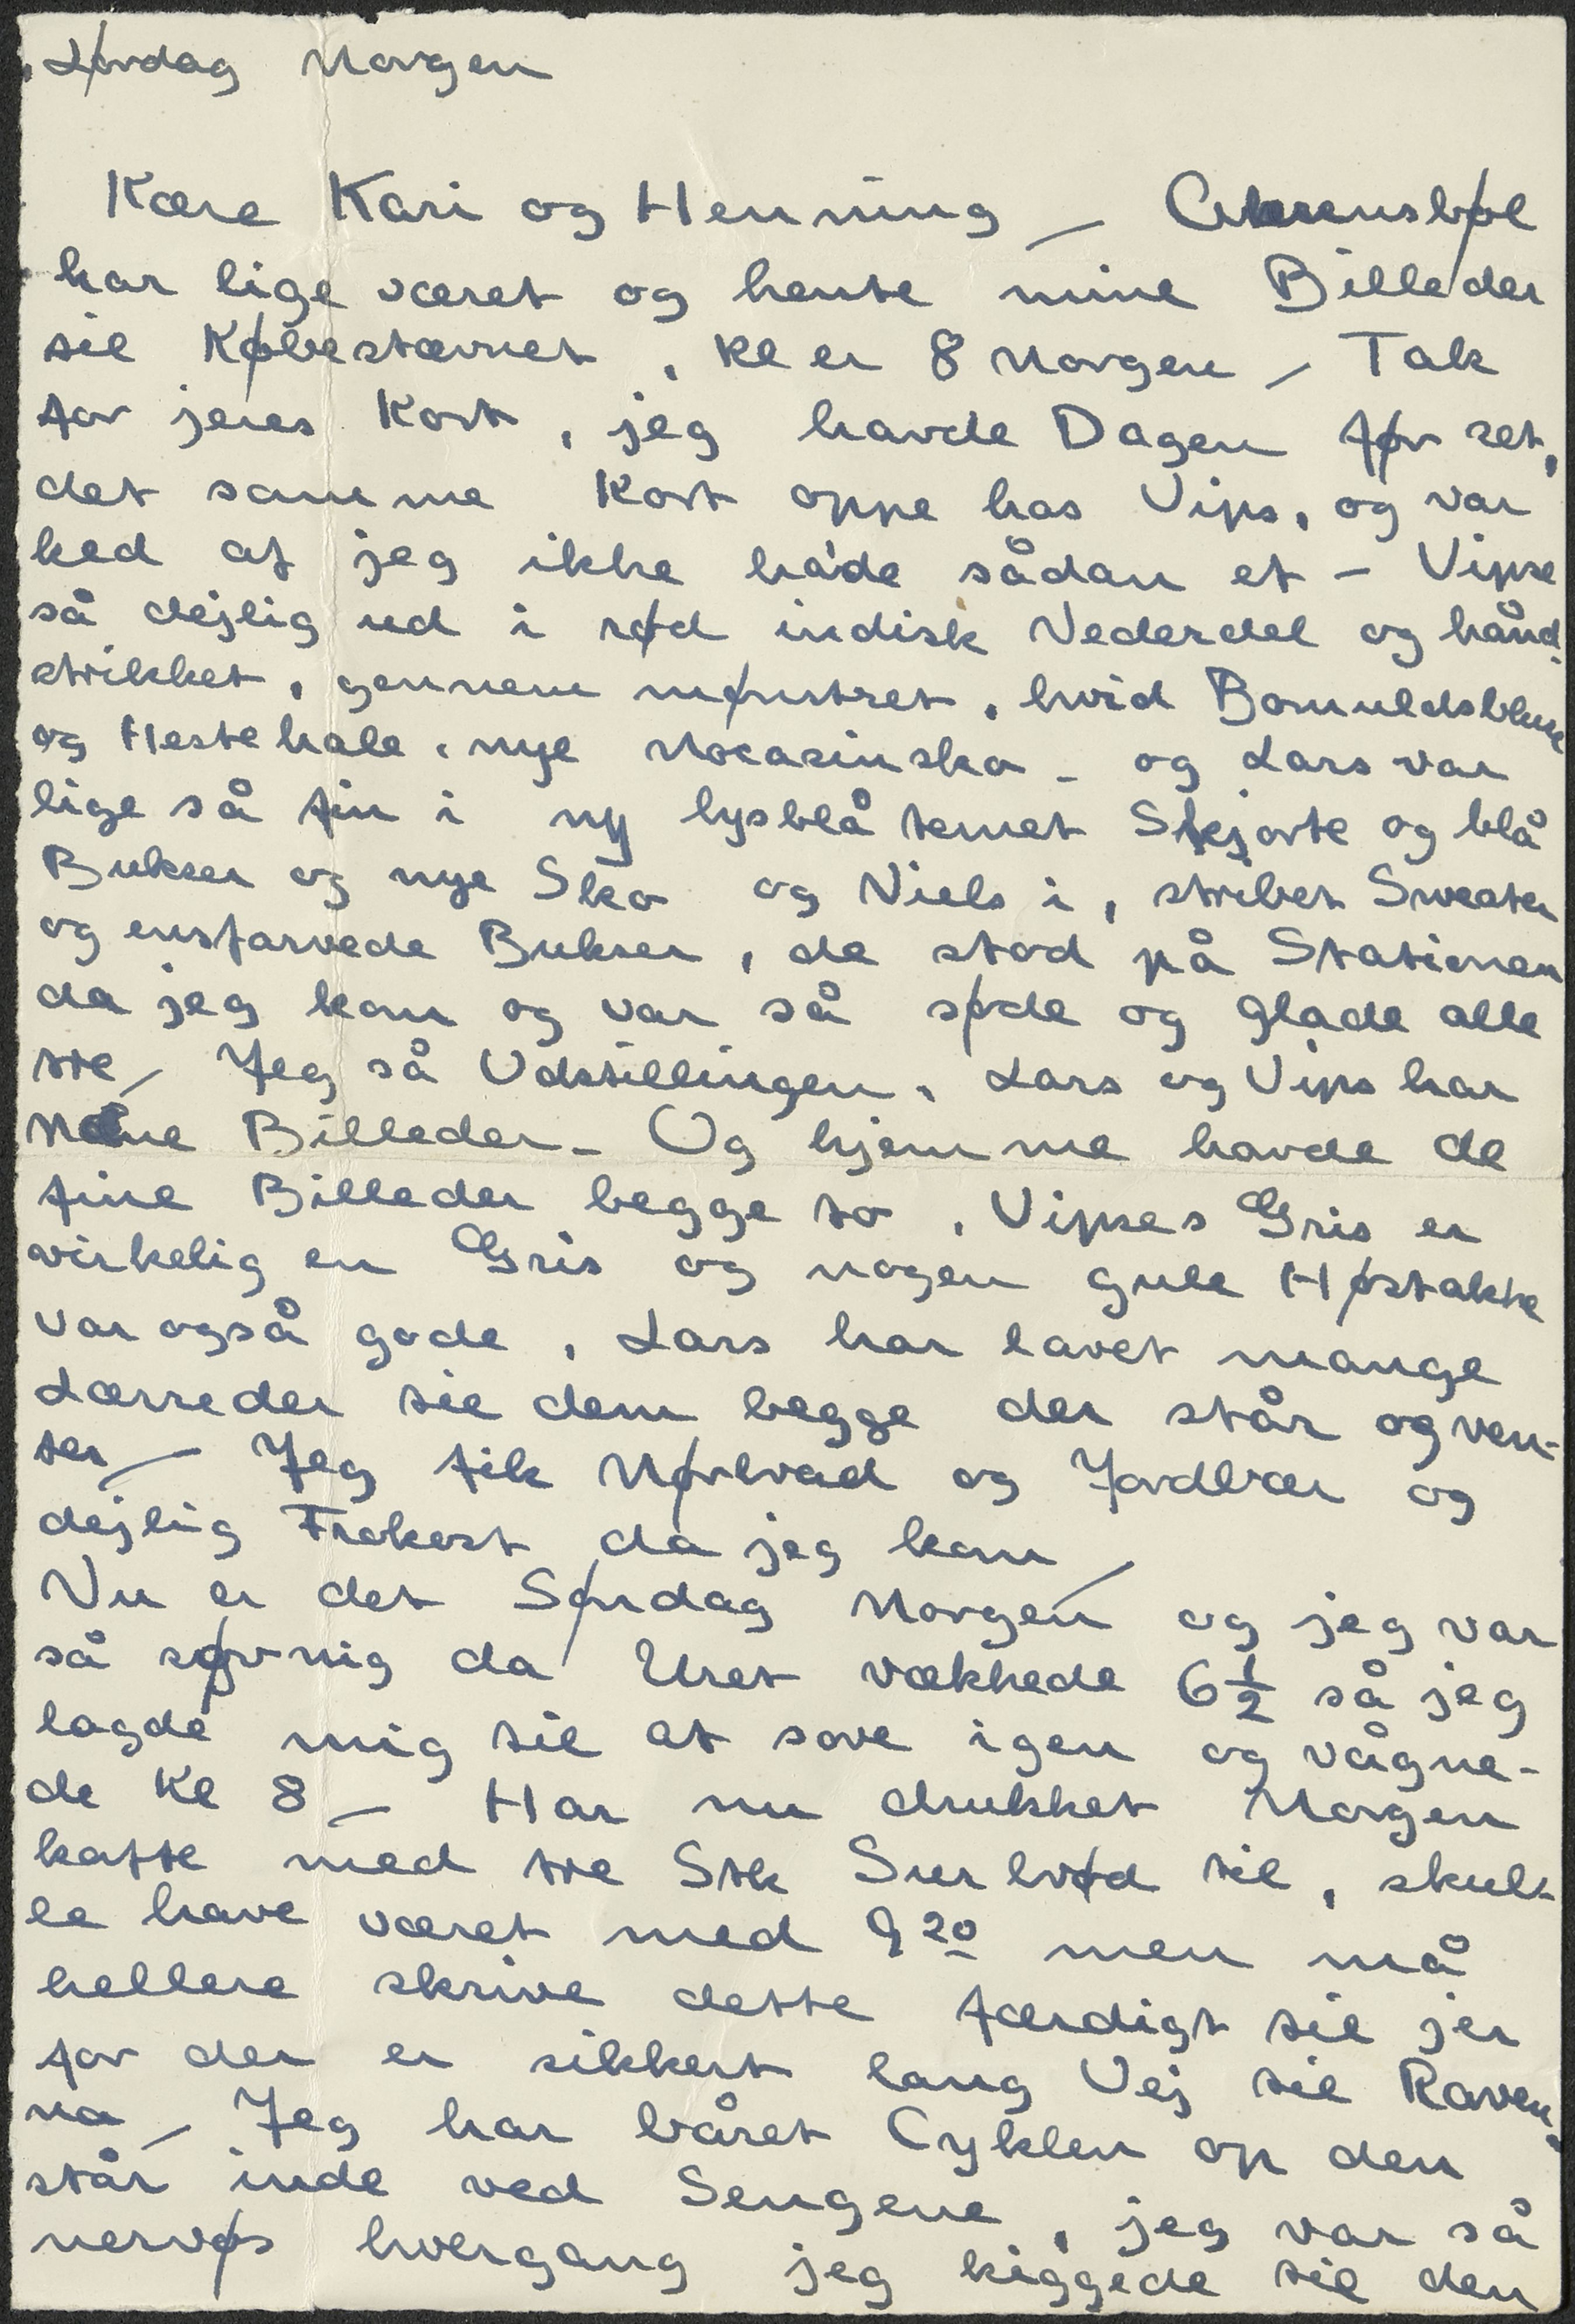 Lørdag Morgen
Kære Kari og Henning –
har lige været og hente mine Billeder
til Købestævnet, kl er 8 Morgen – Tak
for jeres Kort, jeg havde Dagen før set,
det samme Kort oppe hos Vips, og var
ked af jeg ikke håde sådan et – Vipse
så dejlig ud i rød indisk Nederdel og hånd-
strikket, gennem mønstret, hvid Bomuldsbluse
og Hestehale, nye Mocasinsko – og Lars var
lige så fin i ny lysblå ternet Skjorte og blå
Bukser og nye Sko og Niels i, stribet Sweater
og ensfarvede Bukser, de stod på Stationen
da jeg kom og var så søde og glade alle
tre – Jeg så Udstillingen, Lars og Vips har
Billeder – Og hjemme havde de
fine Billeder begge to, Vipses Gris er
virkelig en Gris og nogen gule Høstakke
var også gode, Lars har lavet mange
Lærreder til dem begge der står og ven-
ter – Jeg fik Mørbrad og Jordbær og
dejlig Frokost da jeg kom –
Nu er det Søndag Morgen og jeg var
så søvnig da Uret vækkede 6½ så jeg
lagde mig til at sove igen og vågne-
de Kl 8 – Har nu drukket Morgen
kaffe med tre Stk Surbrød til, skul-
le have været med 9 20 men må
hellere skrive dette færdigt til jer
for der er sikkert lang Vej til Raven-
na – Jeg har båret Cyklen op den
står inde ved Sengene, jeg var så
nervøs hvergang jeg kiggede til den